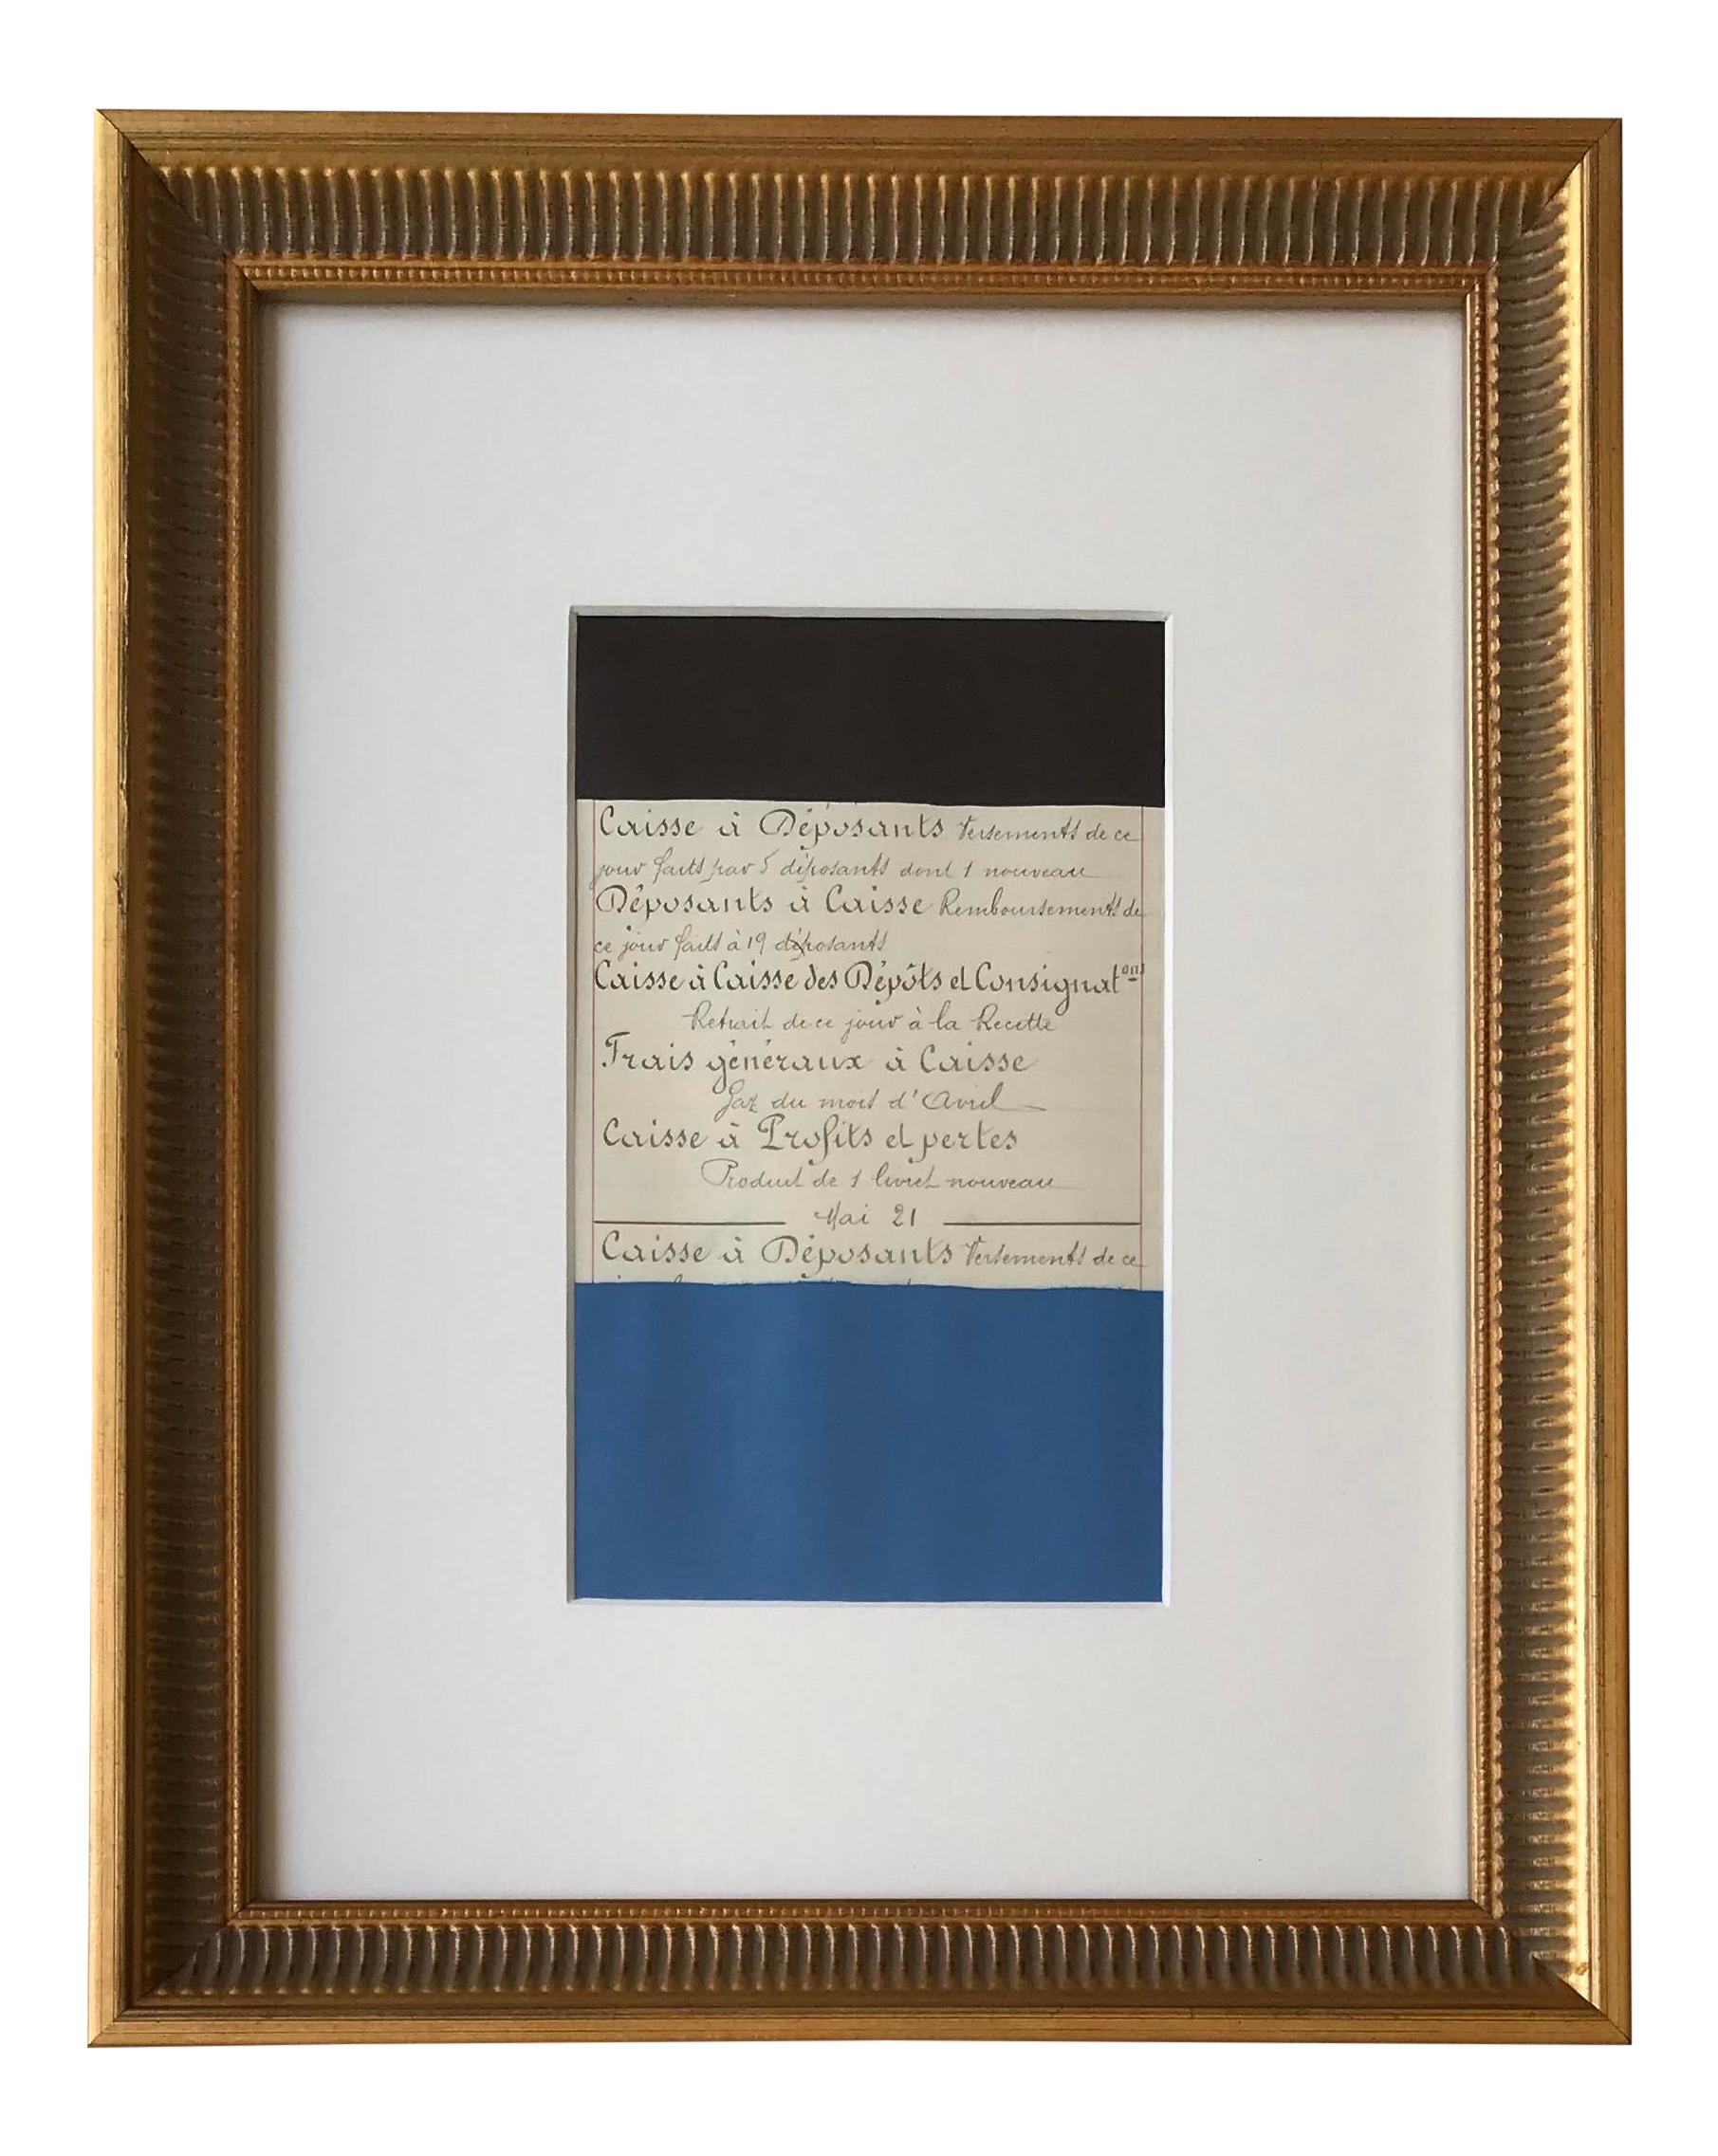 Caisse à Déposants Versements de ce
jour faits par 5 déposants dont 1 nouveau
Déposants à Caisse Remboursements de
ce jour faits à 19 déposants
Caisse à Caisse des Dépôts et Consignatons
Retrait de ce jour à la Recette
Frais généraux à Caisse
Gaz du mois d'Avril
Caisse à Profits et pertes
Produit de 1 livret nouveau
Mai 21
Caisse à Déposants Versements de ce